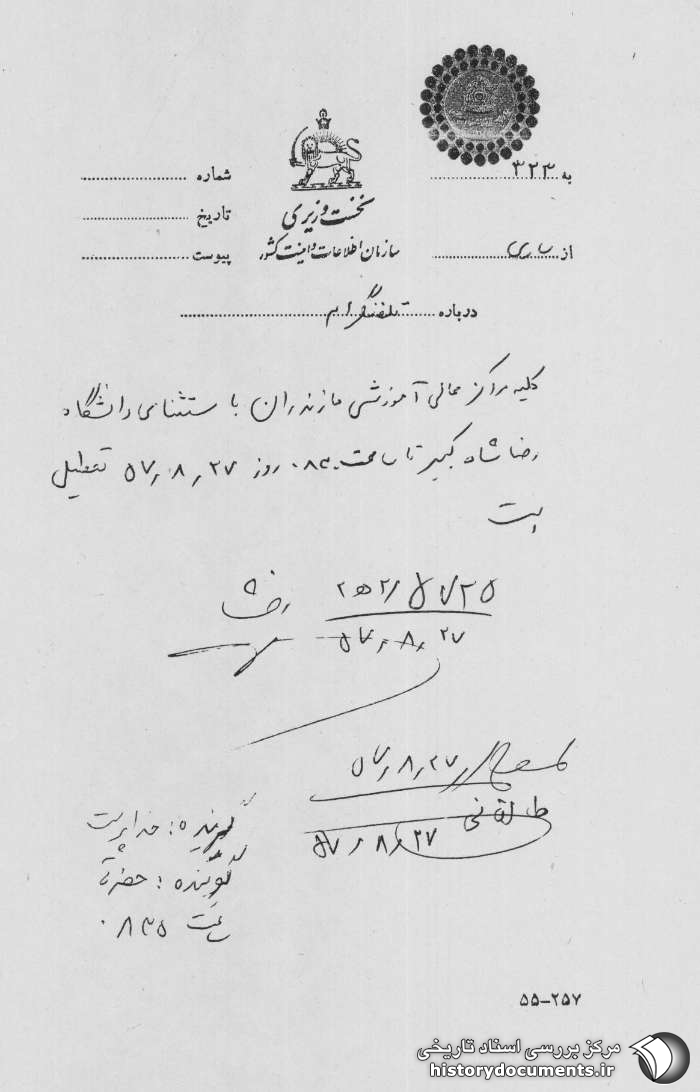 به ۳۲۳
شماره
نخست وزیری
تاریخ
سازمان اطلاعات و امنیت کشور
از ساری
پیوست
درباره تلفنگرام
کلیه مراکز عالی آموزشی مازندران با ستثنای دانشگاه
رضا شاه کبیر تا ساعت ۰۸۳۰ روز ۵۷٫۸٫۲۷ تعطیل
است
۲ه۲/۵۷۲۵
۵۷٫۸٫۲۷
۵۷٫۸٫۲۷
طالقانی
۵۷٫۸٫۲۷
گیرنده : خداپرست
گوینده : حضرتی
ساعت ۰۸۳۵
۵۵-۲۵۷
مرکز بررسی اسناد تاریخی
historydocuments.ir